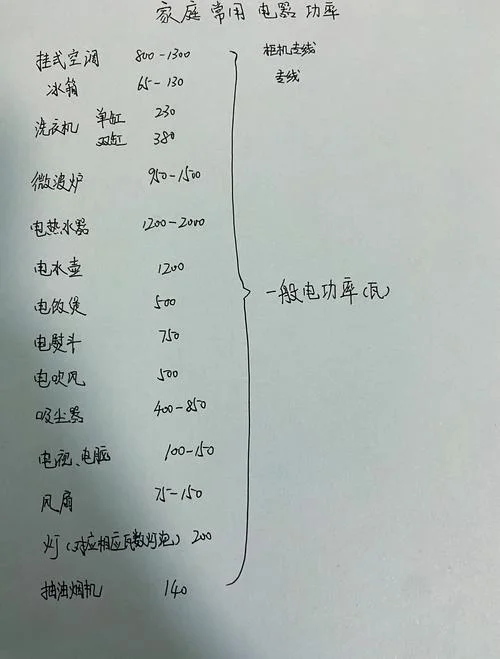 家庭常用电器功率
挂式空调 800-1300 柜机专线
冰箱 65-130 专线
洗衣机 单缸 230
双缸 380
微波炉 950-1500
电热水器 1200-2000
电水壶 1200
电饭煲 500
电熨斗 750
电吹风 500
吸尘器 400-850
电视、电脑 100-150
风扇 75-150
灯(对应相应瓦数灯泡) 200
抽油烟机 140
一般电功率(瓦)